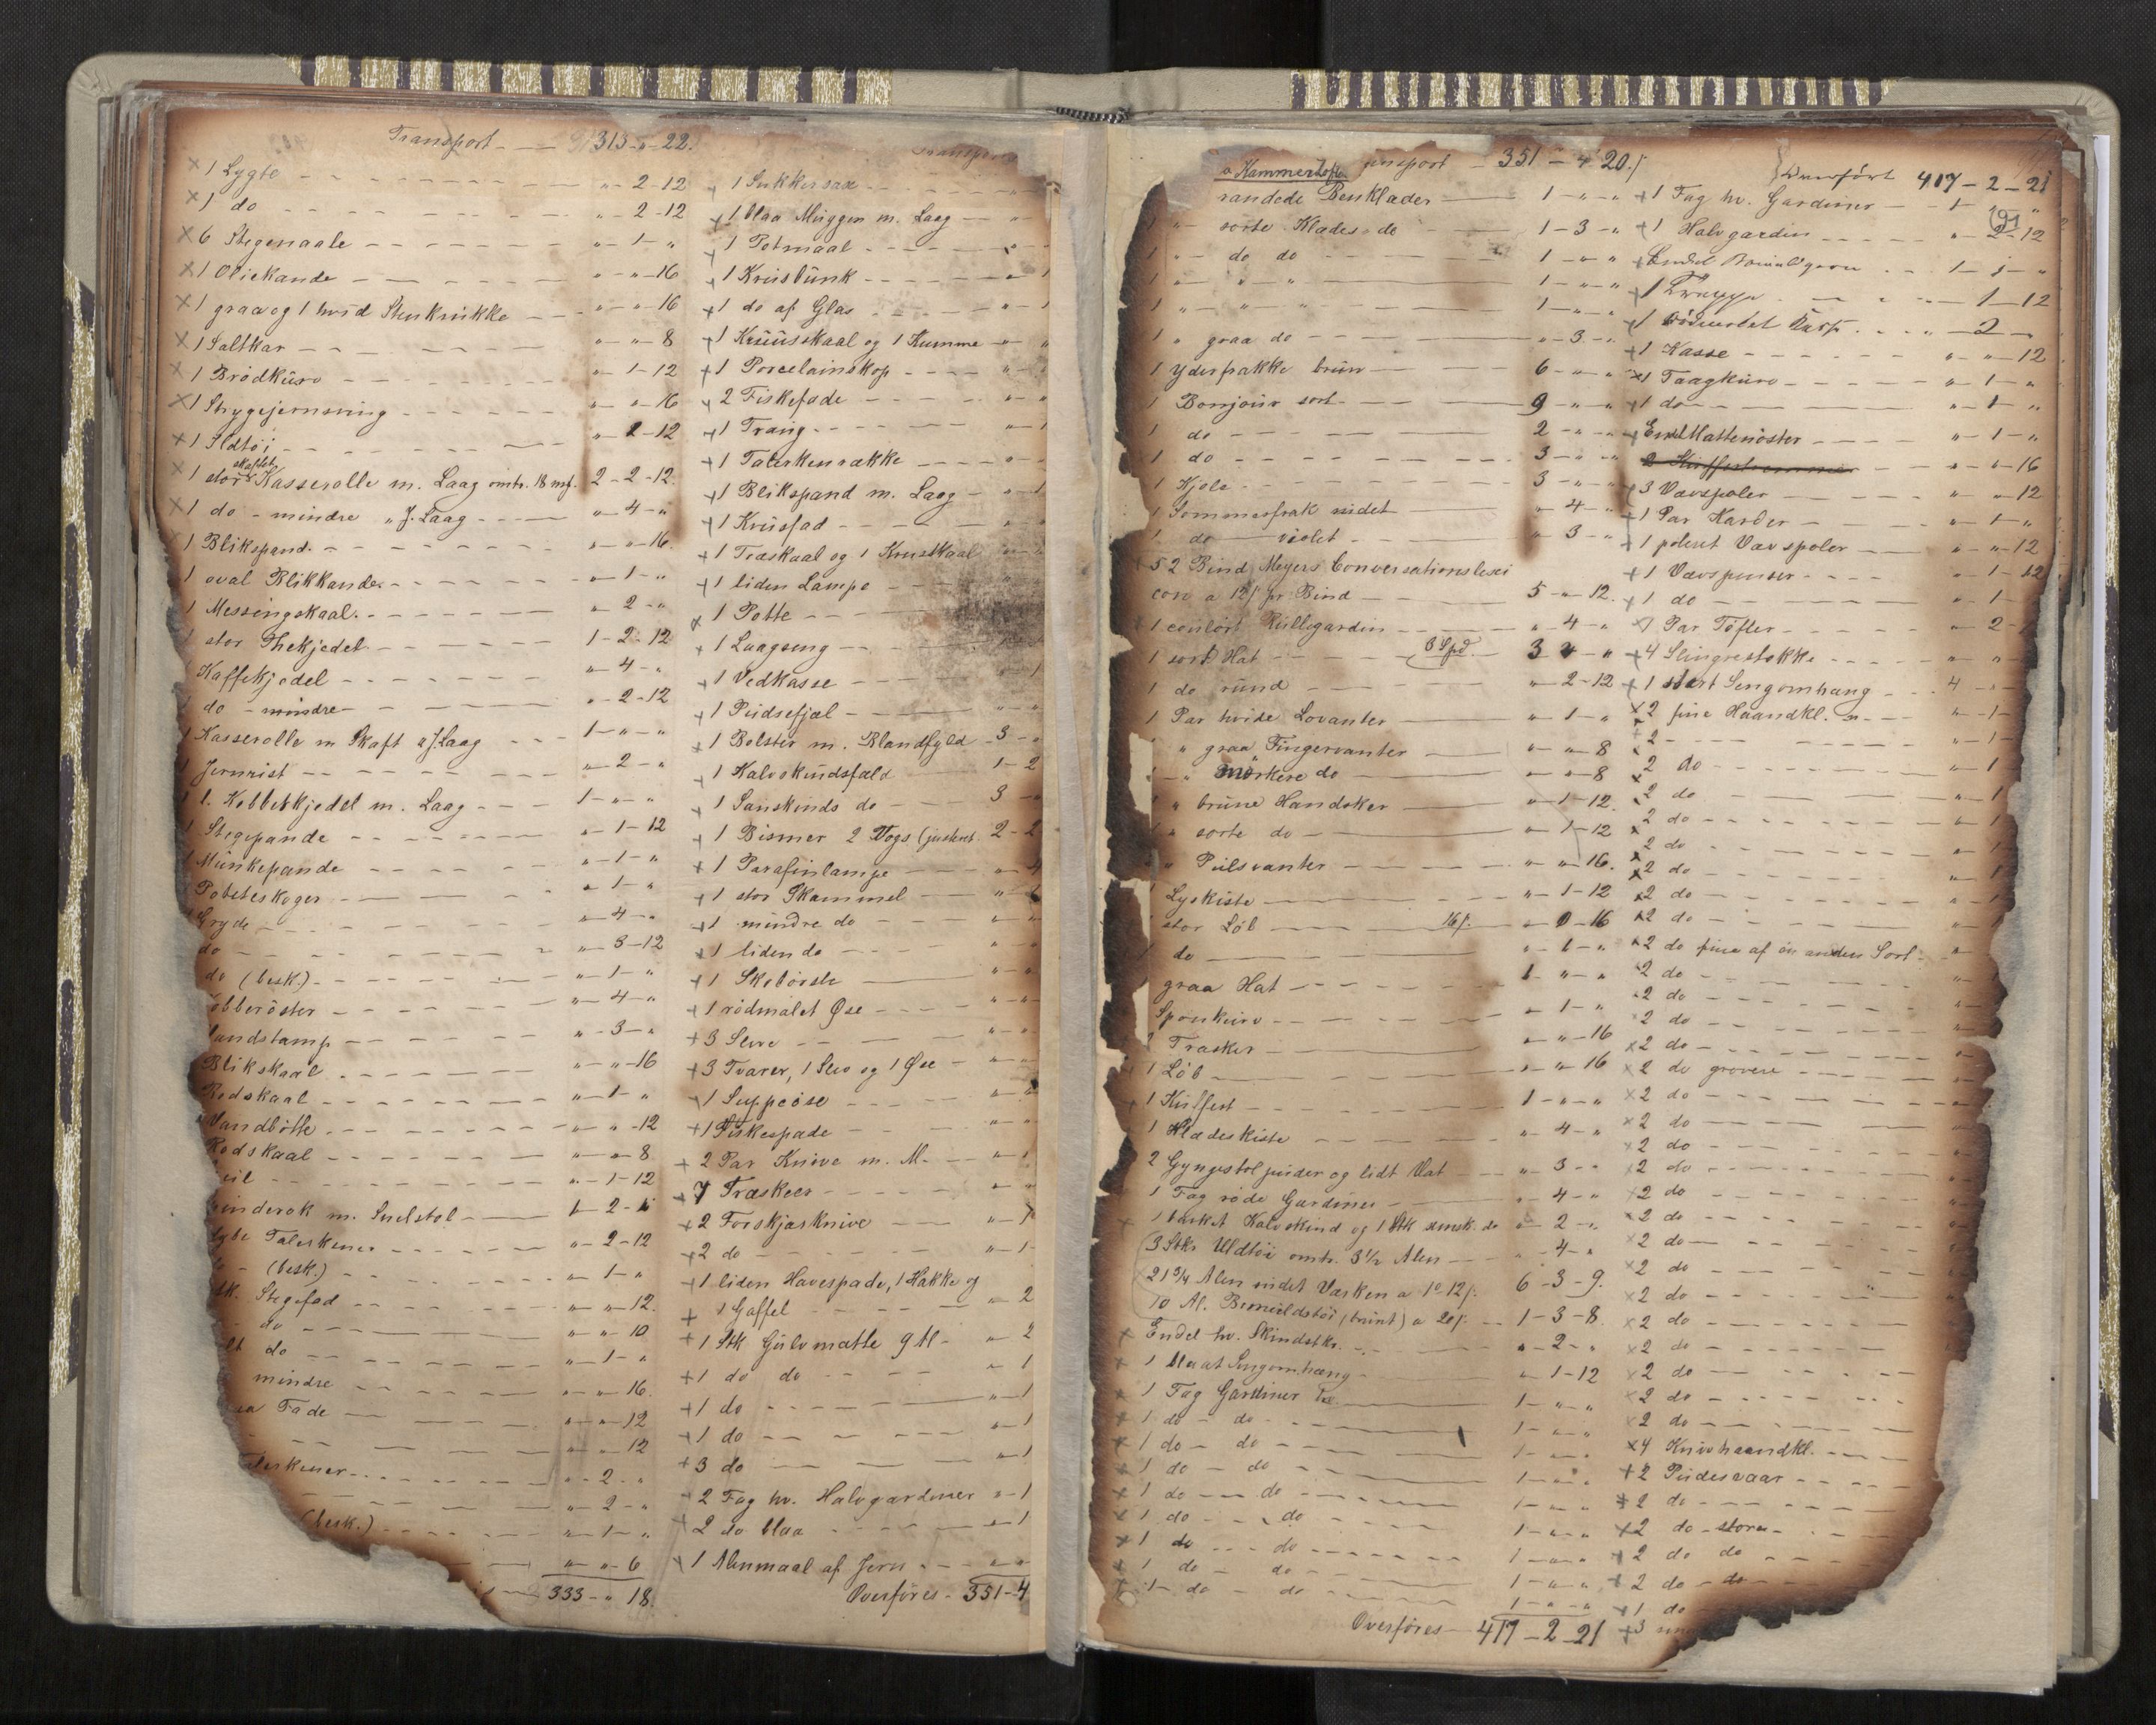 Transport 313 - " - 22.
× 1 Lygte " - 2 - 12
× 1 do " - 2 - 12
× 6 Stegenaale " - 1 - "
× 1 Oliekande " - " - 16
× 1 graa og 1 hvid Stenkrukke " - " - 16
× 1 Saltkar " - " - 8
× 1 Brödkurv " - 1 - 12
× 1 Strygejernsring " - " - 16
× 1 Ildtöi " - 2 - 12
skaftet
× 1 stor Kasserolle m. Laag omtr. 18 mk. 2 - 2 - 12.
× 1 do - mindre " J. Laag " - 4 - "
1 Blikspand " - " - 16.
1 oval Blikkande " - 1 - "
1 Messingskaal " - 2 - "
1 stor Thekjedel 1 - 2 - 12
Kaffekjedel " - 4 - "
1 do - mindre " - 2 - 12
1 Kasserolle m Skaft & J. Laag 1 - " - "
1 Jernrist " - 2 - "
1 l. Kobberkjedel m. Laag 1 - " - "
1 Stegepande " - 1 - 12
1 Munkepande " - 1 - "
Poteteskoger " - 1 - "
Gryde " - 4 - "
do " - 3 - 12
do (besk.) " - 1 - "
" - 4 - "
" - 3 - "
Blikskaal " - " - 16
Rodskaal " - 1 - "
Vandbötte " - " - 12
Rodskaal " - " - 8
" - 1 - 12
m.
dybe Talerkener " - 2 - 12
(besk.) " - 1 - "
Stk. Stegefad " - " - 12.
do " - " - 10
do " - 1 - "
mindre " - " - 16.
Fade " - " - 12
" - " - 12
" - 2 - "
" - 2 - "
(besk.) " - 1 - "
" - " - 6
333 - " 18.
+ 1 Sukkersax
+ 1 blaa Muggen m. Laag
+ 1 Potmaal
+ 1 Kruslunk
+ 1 do af Glas
+ 1 Kruusskaal og 1 Kumme
+ 1 Porcelainskop
+ 2 Fiskefade
+ 1 Traug
+ 1 Talerkenrække
+ 1 Blikspand m. Laag
+ 1 Krusfad
+ 1 Træskaal og 1 Kruskaal
+ 1 liden Lampe
× 1 Potte
+ 1 Laagseng
+ 1 Vedkasse
+ 1 Pudsefjæl
× 1 Bolster m. Blandfyld 3 - "
+ 1 Kalvskindsfæld 1 - 2
+ 1 Sauskinds do 3 - "
+ 1 Bismer 2 Vogs (justeret 2 - 2
+ 1 Parafinlampe " - 4
+ 1 stor Skammel
+ 1 mindre do
+ 1 liden do
+ 1 Skobörste
+ 1 rödmalet Øse
+ 3 Sleve
+ 3 Tvarer, 1 Slev og 1 Øse
+ 1 Suppeöse
+ 1 Fiskespade
+ 2 Par Knive m. M.
+ 7 Træskeer
+ 2 Forskjærknive " - 1
+ 2 do " - 1
+ 1 liden Havespade, 1 Hakke og
+ 1 Gaffel " - 2
+ 1 Stk Gulvmatte 9 Al - " - 2
+ 1 do do " - 1
+ 1 do " - 1
+ 1 do " - 1
+ 3 do " - 1
+ 2 Fag hv. Halvgardiner " - 1
+ 2 do blaa " - 1
+ 1 Alenmaal af Jern
Overföres - 351 - 4
351 - 4 20./
randede Benklæder 1 - " - "
1 " sorte Klædes do 1 - 3 - "
1 " do do 1 - " - "
1 " " " 1 - " - "
1 " " " 1 - " - "
1 " graa do " - 3 - "
1 Yderfrakke brun 6 - " - "
1 Bonjour sort 9 - " - "
1 do 2 - " - "
1 do 3 - " - "
1 Kjole 3 - " - "
1 Sommerfrak ridet " - 4 - "
1 do violet " - 3 - "
+ 52 Bind Meyers Conversationslexi
con a 12/ pr. Bind 5 - " - 12.
+ 1 coulört Rullegardin " - 4 - "
1 sort Hat 6 Spd. 3
1 do rund " - 2 - 12
1 Par hvide Lovanter " - 1 - "
" graa Fingervanter " - " - 8
1 - " mörkere do " - " - 8
" brune Handsker " - 1 - 12.
1 " sorte do " - 1 - 12
" Pulsvanter " - " - 16.
Lyskiste " - 1 - 12
stor Löb 16/. " - 0 - 16
1 do
graa Hat
Sponkurv " - 1 - "
2 Træsker " - " - 16
1 Löb " - " 16
+ 1 Kuffert 1 - " - "
1 Klædeskiste " - 4 - "
2 Gyngestolpuder og lidt Vat " - 3 - "
1 Fag röde Gardiner " - 4 - "
1 barket Kalvskind og 1 Stk smsk. do " - 2 - "
3 Stkr Uldtöi omtr. 3 1/2 Alen " - 4 - "
21 3/4 Alen ridet Værken a 1 o 12/. 6 - 3 - 9.
10 Al. Bomuldstöi (brunt) a 20/. 1 - 3 - 8.
+ Endel hv. Skindstkr. " - 2 - "
+ 1 blaat Sengomhæng " - 1 - 12
+ 1 Fag Gardiner 1 - " - "
+ 1 do - do 1 - " - "
× 1 do - do 1 - " - "
× 1 do - do 1 - " - "
× 1 do - do 1 - " - "
× 1 do - do 1 - " - "
× 1 do - do 1 - " - "
× 1 do - do 1 - " - "
1 - do - do 1 - " - "
Overföres 417 - 2 - 21
Overfört 417 - 2 - 21
+ 1 Fag hv. Gardiner - 1 -
+ 1 Halvgardin " - 2 - 12
+ Endel 1 - 1 - "
+ 1 1 - 12
+ 1 2 -
+ 1 Kasse " - " - 12
× 1 Taagkurv " - 1 - "
+ 1 do " - 1 - "
+ Endl Mattenöster " - 1 - "
" - " - 16
+ 3 Vævspoler " - " - 12
+ 1 Par Karder " - 1 - "
+ 1 poleret Vævspoler " - " - 12
+ 1 Vævspenser " - 1 - 12
+ 1 do " - 1 -
× 1 Par Töfler " - 2 -
+ 4 Slingrestokke " - "
+ 1 stort Sengomhæng 4 - " -
× 2 fine Haandkl. " - 1 -
+ 2 - " - 1 -
× 2 do " - 1
× 2 do " - 1
× 2 do " - 1
× 2 do " - 1
× 2 do " - 1
× 2 do " - 1
× 2 do " - 1
× 2 do fine af en anden Sort
× 2 do
× 2 do
× 2 do
× 2 do
× 2 do grovere
× 2 do
× 2 do
× 2 do
× 2 do
× 2 do
× 2 do
× 2 do
× 2 do
× 2 do
× 2 do
× 2 do
× 2 do
× 2 do
× 2 do
× 4 Knivhaandkl.
+ 2 Pudevaar
+ 2 do
× 2 do - store
+ 2 do do
+ 2 do - do
+ 1 do
+ 3